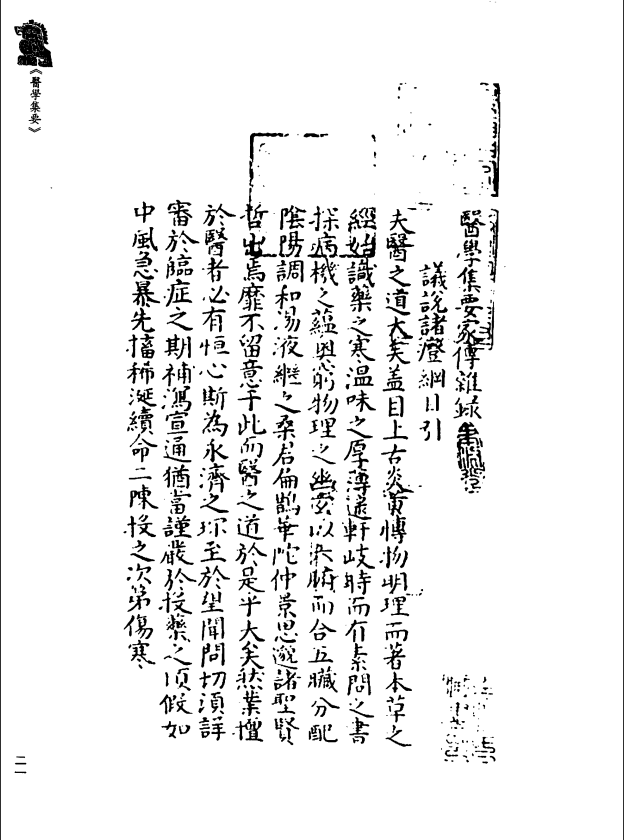 《醫學集要》
醫學集要家傳雜錄
議說諸證綱目引
夫醫之道大矣盖自上古炎黄愽物明理而著本草之
經始識藥之寒温味之厚薄遂軒岐時而有素問之書
探病機之蘊奥窮物理之幽玄以六腑而合五臟分配
陰陽調和湯液繼之桑君倫鵲華陀仲景思邈諸聖賢
哲出焉靡不留意于此而醫之道於是乎大矣然業擅
於醫者必有恒心斯為永濟之珎至於望聞問切須詳
審於臨症之期補瀉宣通猶當謹嚴於投藥之頃假如
中風急暴先擂稀涎續命二陳投之次第傷寒
二一